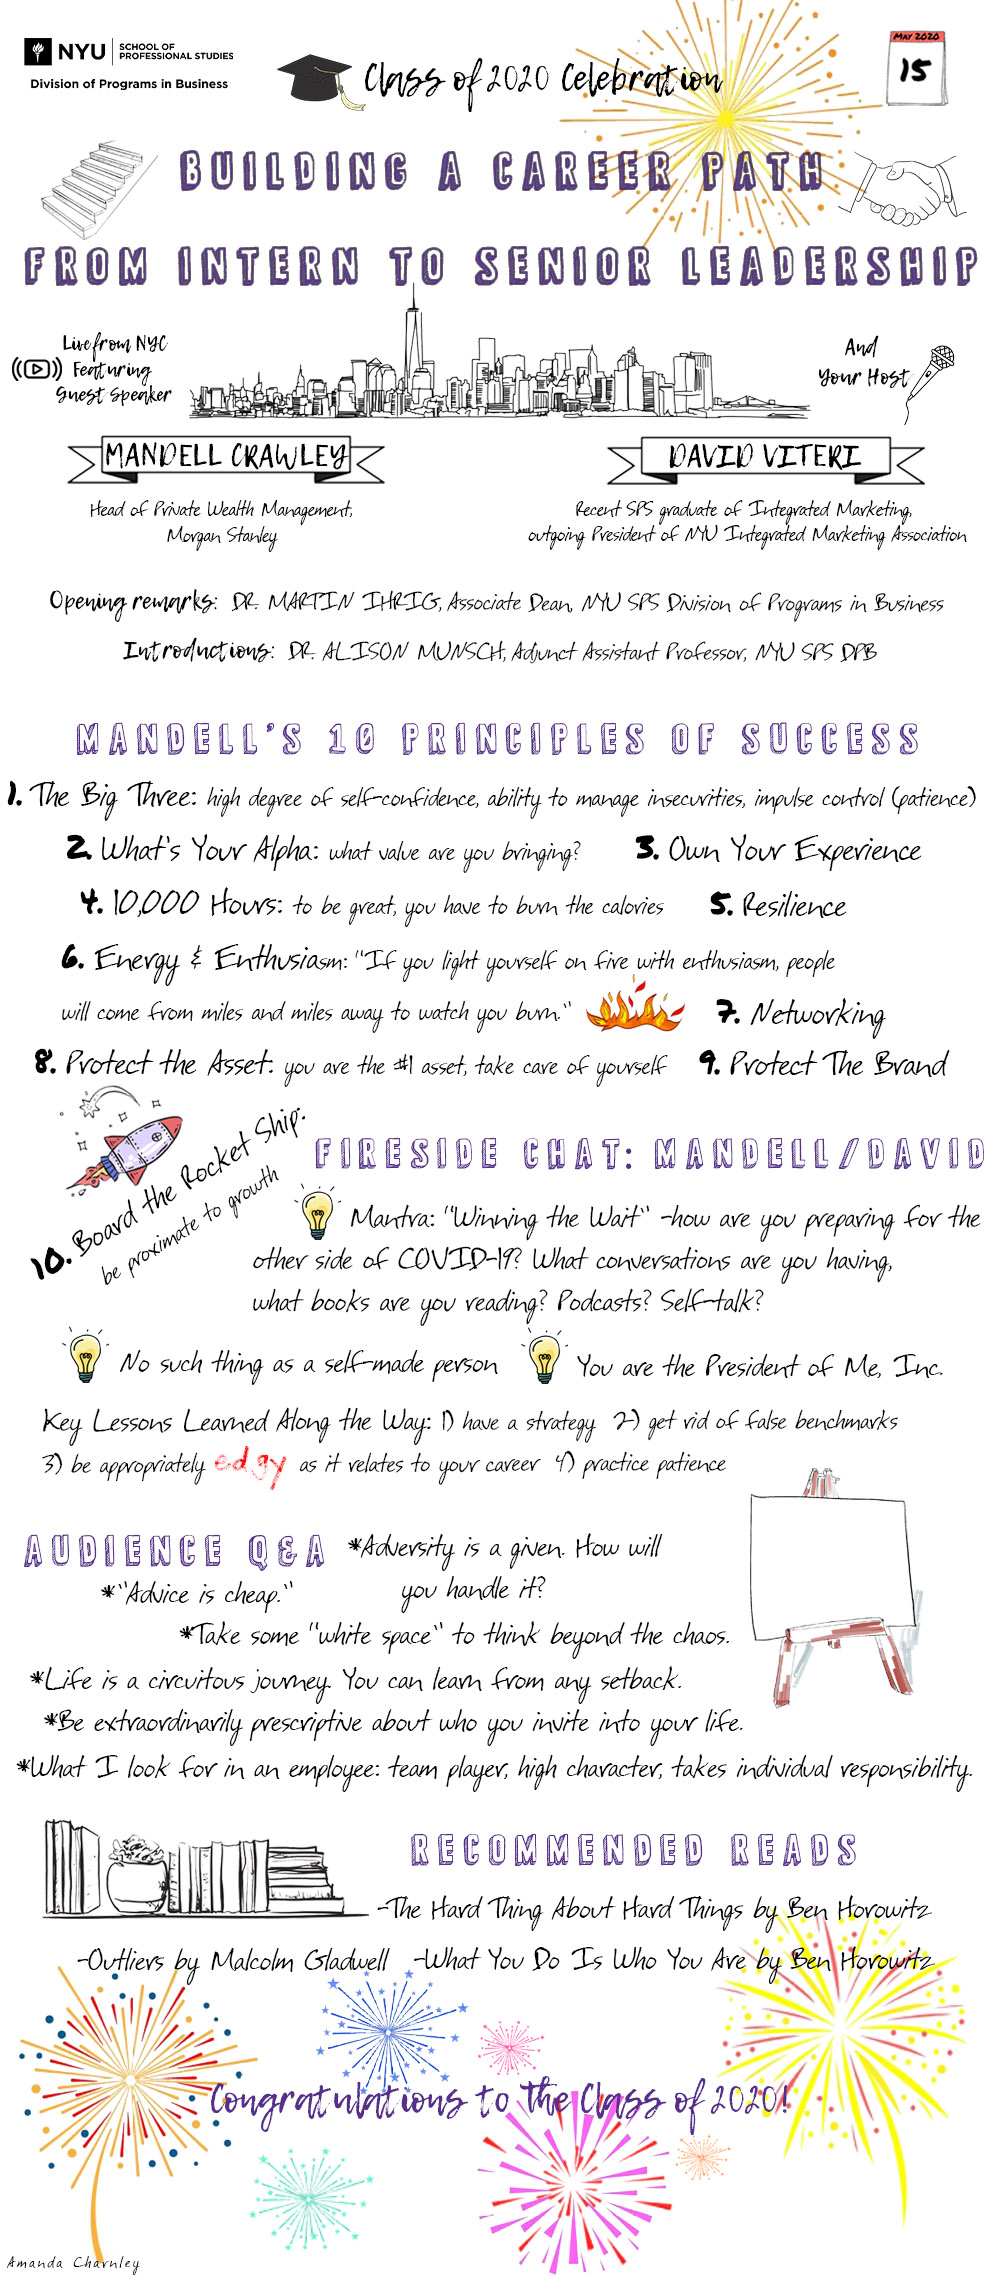 NYU SCHOOL OF
PROFESSIONAL STUDIES
Division of Programs in Business
Class of 2020 Celebration
MAY 2020
15
BUILDING A CAREER PATH
FROM INTERN TO SENIOR LEADERSHIP
Live from NYC
Featuring
Guest Speaker
And
Your Host
MANDELL CRAWLEY
DAVID VITERI
Head of Private Wealth Management,
Morgan Stanley
Recent SPS graduate of Integrated Marketing,
outgoing President of NYU Integrated Marketing Association
Opening remarks: DR. MARTIN IHRIG, Associate Dean, NYU SPS Division of Programs in Business
Introductions: DR. ALISON MUNSCH, Adjunct Assistant Professor, NYU SPS DPB
MANDELL'S 10 PRINCIPLES OF SUCCESS
1. The Big Three: high degree of self-confidence, ability to manage insecurities, impulse control (patience)
2. What's Your Alpha: what value are you bringing? 3. Own Your Experience
4. 10,000 Hours: to be great, you have to burn the calories 5. Resilience
6. Energy & Enthusiasm: "If you light yourself on fire with enthusiasm, people
will come from miles and miles away to watch you burn." 7. Networking
8. Protect the Asset: you are the #1 asset, take care of yourself 9. Protect The Brand
10. Board the Rocket Ship:
be proximate to growth
FIRESIDE CHAT: MANDELL/DAVID
Mantra: "Winning the Wait" -how are you preparing for the
other side of COVID-19? What conversations are you having,
what books are you reading? Podcasts? Self-talk?
No such thing as a self-made person
You are the President of Me, Inc.
Key Lessons Learned Along the Way: 1) have a strategy 2) get rid of false benchmarks
3) be appropriately edgy as it relates to your career 4) practice patience
AUDIENCE Q&A
*Adversity is a given. How will
you handle it?
*"Advice is cheap."
*Take some "white space" to think beyond the chaos.
*Life is a circuitous journey. You can learn from any setback.
*Be extraordinarily prescriptive about who you invite into your life.
*What I look for in an employee: team player, high character, takes individual responsibility.
RECOMMENDED READS
-The Hard Thing About Hard Things by Ben Horowitz
-Outliers by Malcolm Gladwell -What You Do Is Who You Are by Ben Horowitz
Congratulations to The Class of 2020!
Amanda Charnley